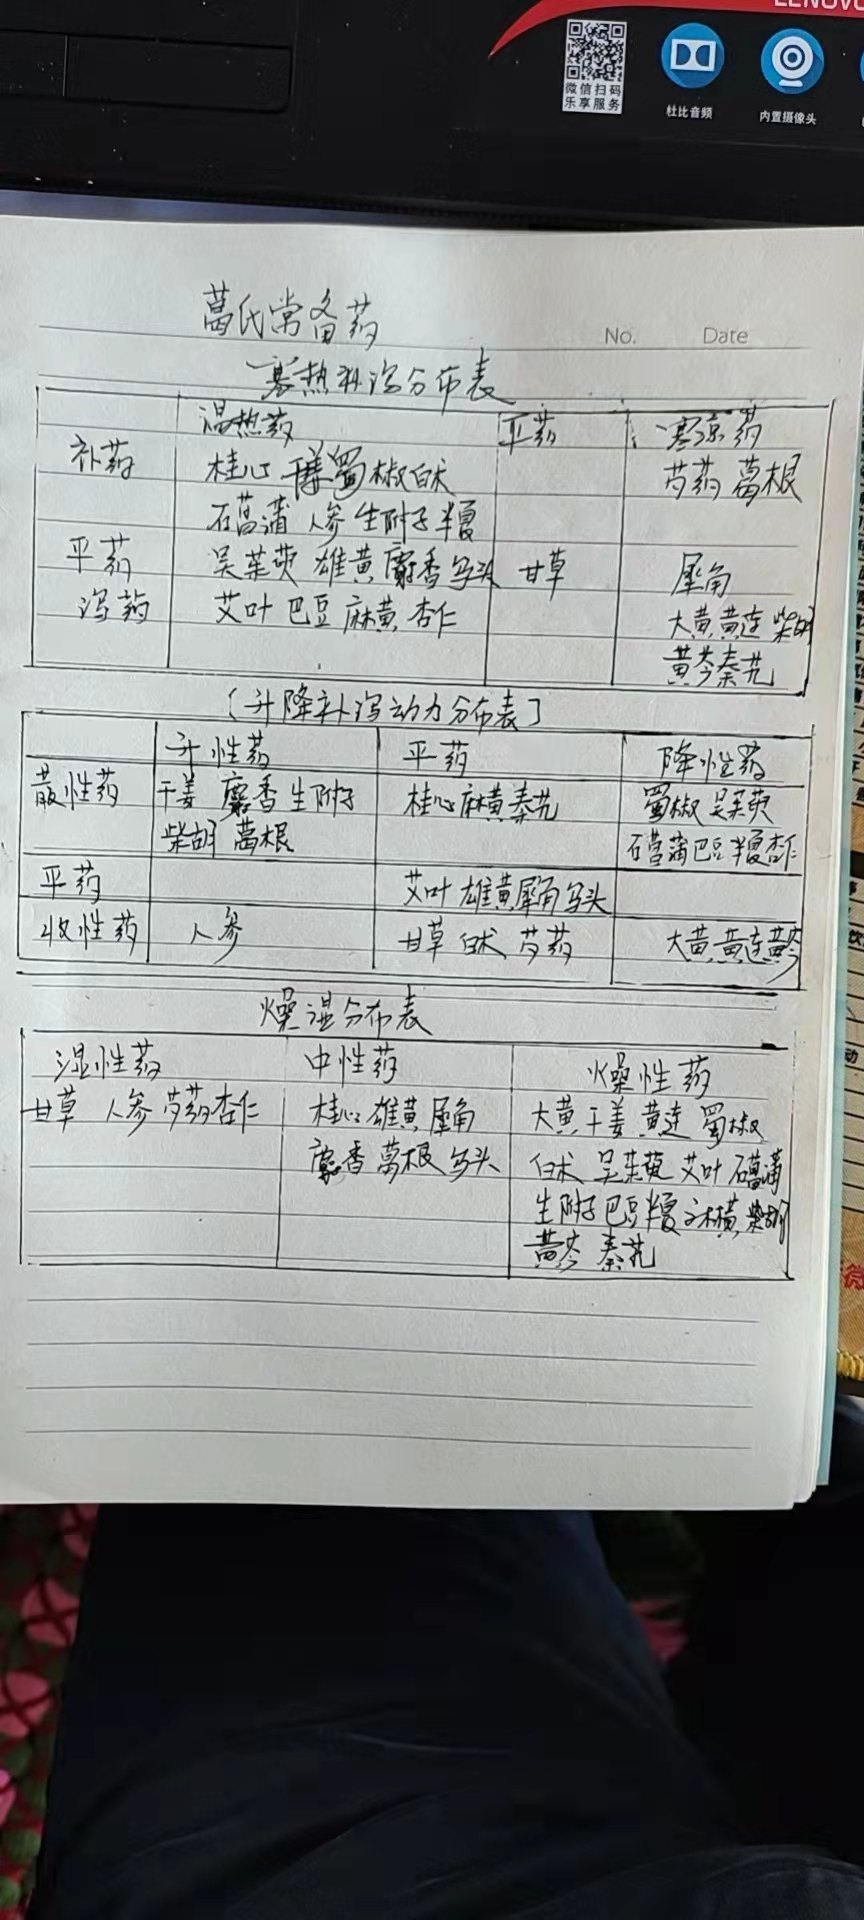 LENOVO
微信扫码
乐享服务
杜比音频
内置摄像头
葛氏常备药
No. Date
寒热补泻分布表
温热药 平药 寒凉药
补药 桂心 干姜 蜀椒 白术 芍药 葛根
石菖蒲 人参 生附子 半夏
平药 吴茱萸 雄黄 麝香 乌头 甘草 犀角
泻药 艾叶 巴豆 麻黄 杏仁 大黄 黄连 柴胡
黄芩 秦艽
(升降补泻动力分布表]
升性药 平药 降性药
散性药 干姜 麝香 生附子 桂心 麻黄 秦艽 蜀椒 吴茱萸
柴胡 葛根 石菖蒲 巴豆 半夏 杏仁
平药 艾叶 雄黄 犀角 乌头
收性药 人参 甘草 白术 芍药 大黄 黄连 黄芩
燥湿分布表
湿性药 中性药 燥性药
甘草 人参 芍药 杏仁 桂心 雄黄 犀角 大黄 干姜 黄连 蜀椒
麝香 葛根 乌头 白术 吴茱萸 艾叶 石菖蒲
生附子 巴豆 半夏 麻黄 柴胡
黄芩 秦艽